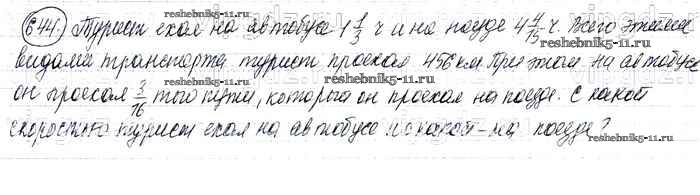 644. Турист ехал на автобусе 1 1/3 ч и на поезде 4 4/15 ч. Всего этими
видами транспорта турист проехал 456 км. При этом на автобусе
он проехал 3/16 того пути, который он проехал на поезде. С какой
скоростью турист ехал на автобусе и с какой - на поезде?
reshebnik5-11.ru
reshebnik5-11.ru
reshebnik5-11.ru
reshebnik5-11.ru